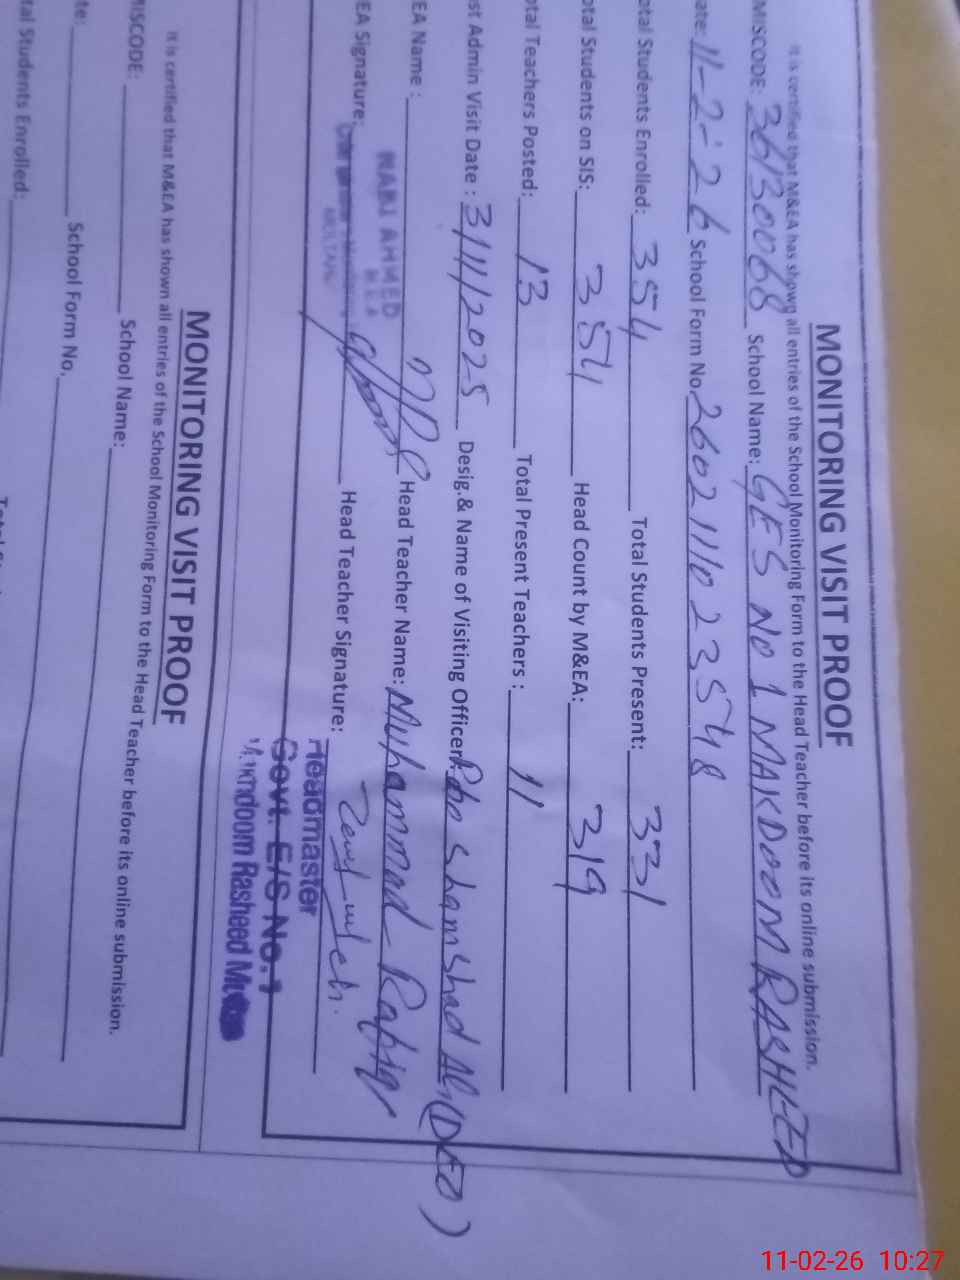 MONITORING VISIT PROOF
It is certified that M&EA has shown all entries of the School Monitoring Form to the Head Teacher before its online submission.
MISCODE: 36130068 School Name: GES No 1 MAKDOOM RASHEED
ate: 11-2-26 School Form No. 26021110 23548
otal Students Enrolled: 354 Total Students Present: 331
otal Students on SIS: 354 Head Count by M&EA: 319
otal Teachers Posted: 13 Total Present Teachers : 11
st Admin Visit Date : 3/11/2025 Desig.& Name of Visiting Officer: Shamshad Ali (DEO)
EA Name : Head Teacher Name: Muhammad Rafiq
NABI AHMED
M.E.A
EA Signature: Head Teacher Signature:
MULTAN
Headmaster
Govt. E/S No. 1
Makhdoom Rasheed
MONITORING VISIT PROOF
It is certified that M&EA has shown all entries of the School Monitoring Form to the Head Teacher before its online submission.
ISCODE: School Name:
te: School Form No.
tal Students Enrolled:
11-02-26 10:27